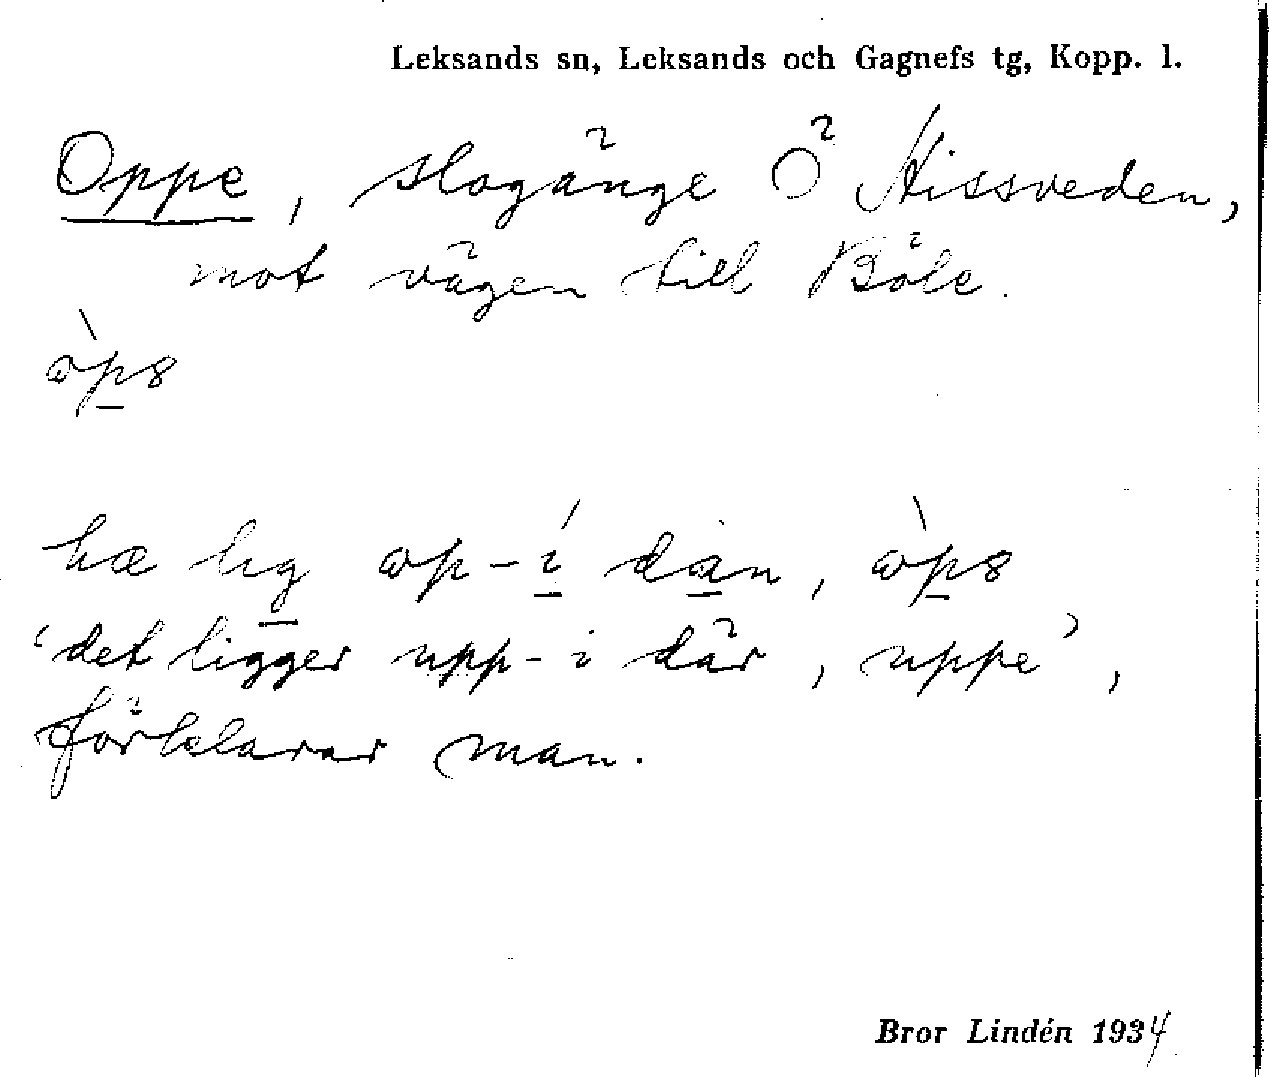 Leksands sn, Leksands och Gagnefs tg, Kopp. l.
Oppe, slogänge Ö Hissveden,
mot vägen till Böle.
òps
hæ lig op-í dan, òps
‘det ligger upp-i där, uppe’,
förklarar man.
Bror Lindén 1934